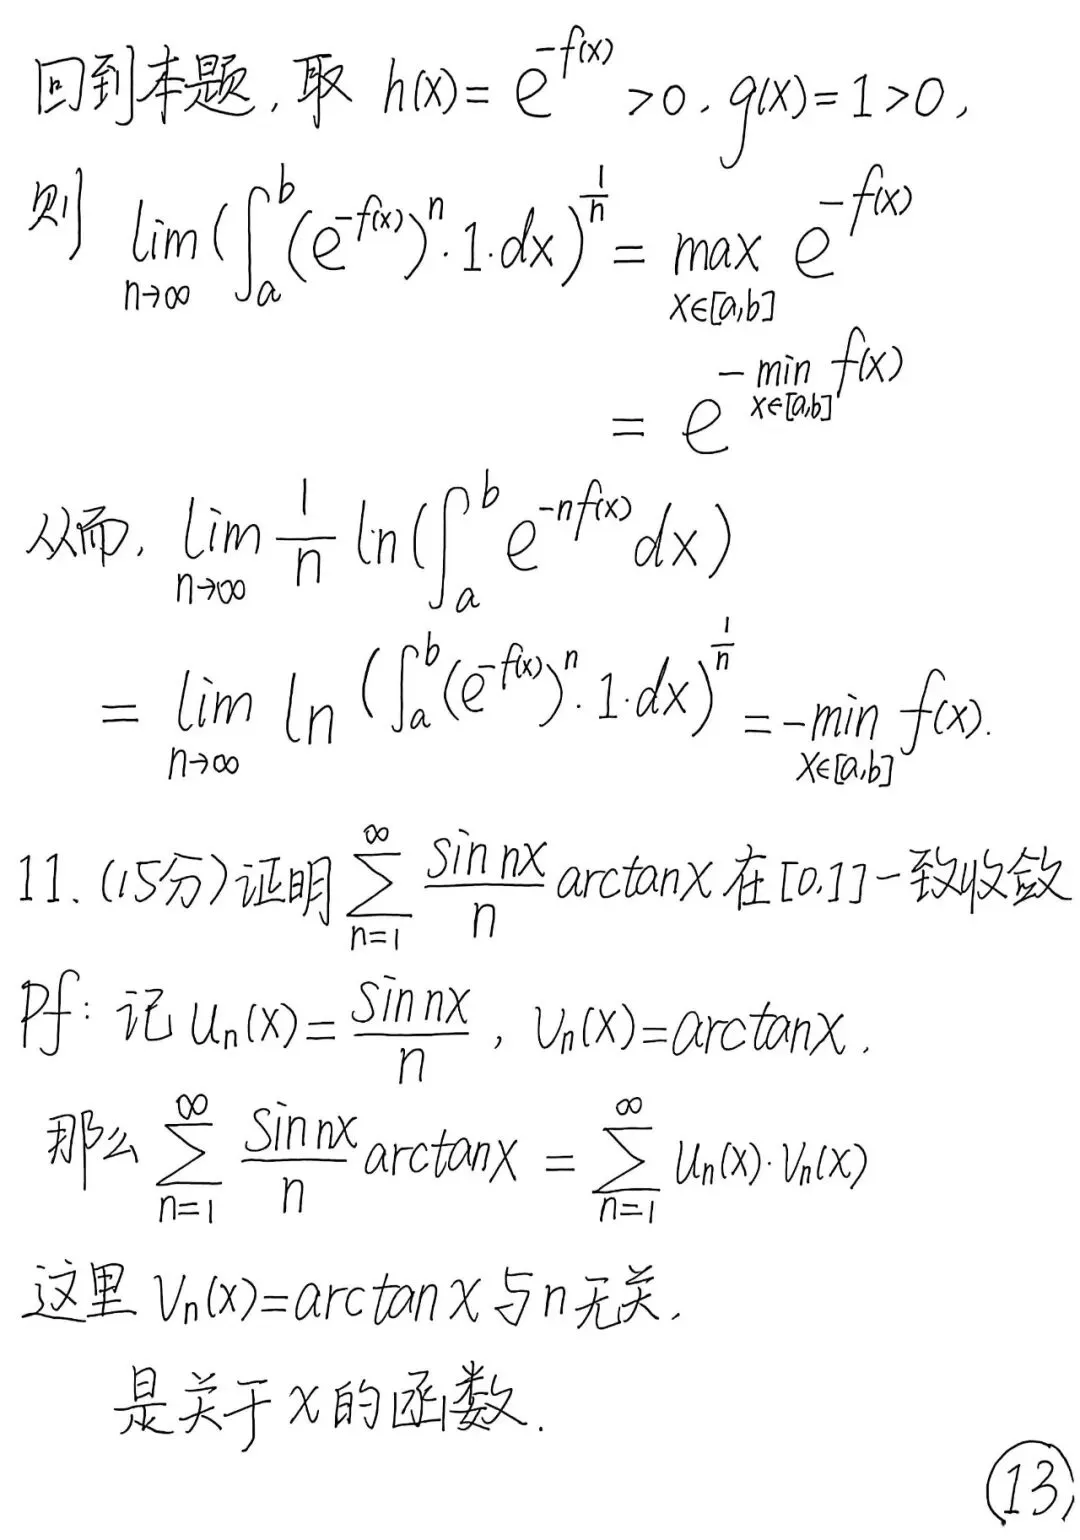 回到本题,取 h(x)=e^{-f(x)}>0,g(x)=1>0,
则 lim_{n→∞}(∫_a^b(e^{-f(x)})^n·1·dx)^{1/n}=max_{x∈[a,b]} e^{-f(x)}
=e^{-min_{x∈[a,b]}f(x)}
从而, lim_{n→∞} 1/n ln(∫_a^b e^{-nf(x)}dx)
=lim_{n→∞} ln(∫_a^b(e^{-f(x)})^n·1·dx)^{1/n}=-min_{x∈[a,b]}f(x).
11.(15分)证明∑_{n=1}^∞ sin nx/n arctanx在[0,1]一致收敛
Pf: 记 u_n(x)=sin nx/n, v_n(x)=arctanx.
那么 ∑_{n=1}^∞ sin nx/n arctanx=∑_{n=1}^∞ u_n(x)·v_n(x)
这里 v_n(x)=arctan x与n无关,
是关于x的函数.
13